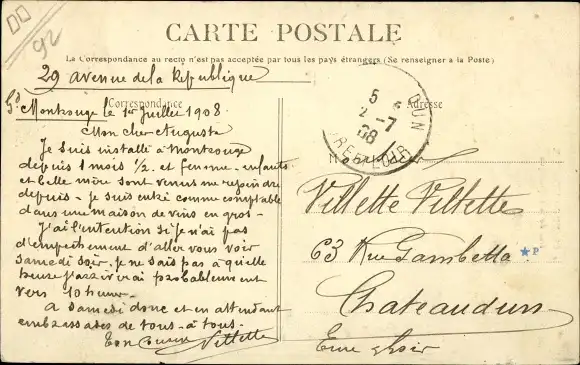 92
CARTE POSTALE
La Correspondance au recto n'est pas acceptée par tous les pays étrangers (Se renseigner a la Poste)
29 avenue de la République
Correspondance
Gd Montrouge le 1er Juillet 1908.
Mon cher Auguste
Je suis installé à Montrouge
depuis 1 mois 1/2. et femme - enfants
et belle mère sont venus me rejoindre
depuis - je suis entré comme comptable
dans une maison de vins en gros -
J'ai l'intention si je n'ai pas
d'empêchement d'aller vous voir
samedi soir. je ne sais pas à qu'elle
heure j'arriverai probablement
vers 10 heures -
a samedi donc et en attendant
embrassades de tous - à tous -
Ton Cousin Villette
Adresse
5
2 - 7
08
DUN
EURE-ET-LOIR
M
Villette Villette
63 Rue Gambetta
★P
Chateaudun
Eure & Loir